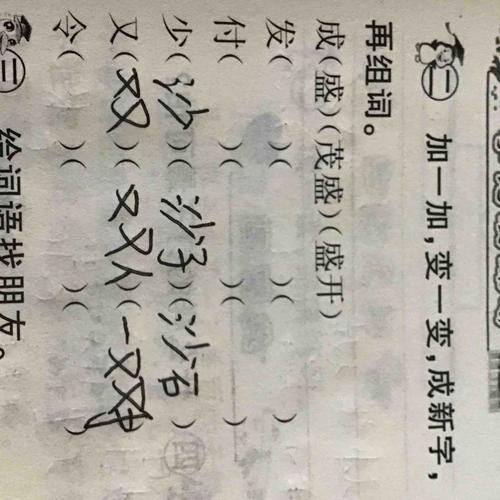 二 加一加,变一变,成新字,
再组词。
成(盛)(茂盛)(盛开)
发( )( )( )
付( )( )( )
少(沙)(沙子)(沙石)
又(双)(双人)(一双)
令( )( )( )
三 给词语找朋友。